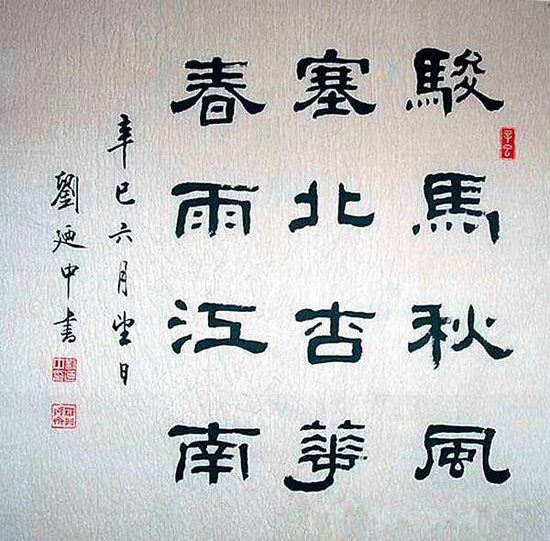 駿馬秋風
塞北杏華
春雨江南
辛巳六月望日
劉廼中書
辛巳